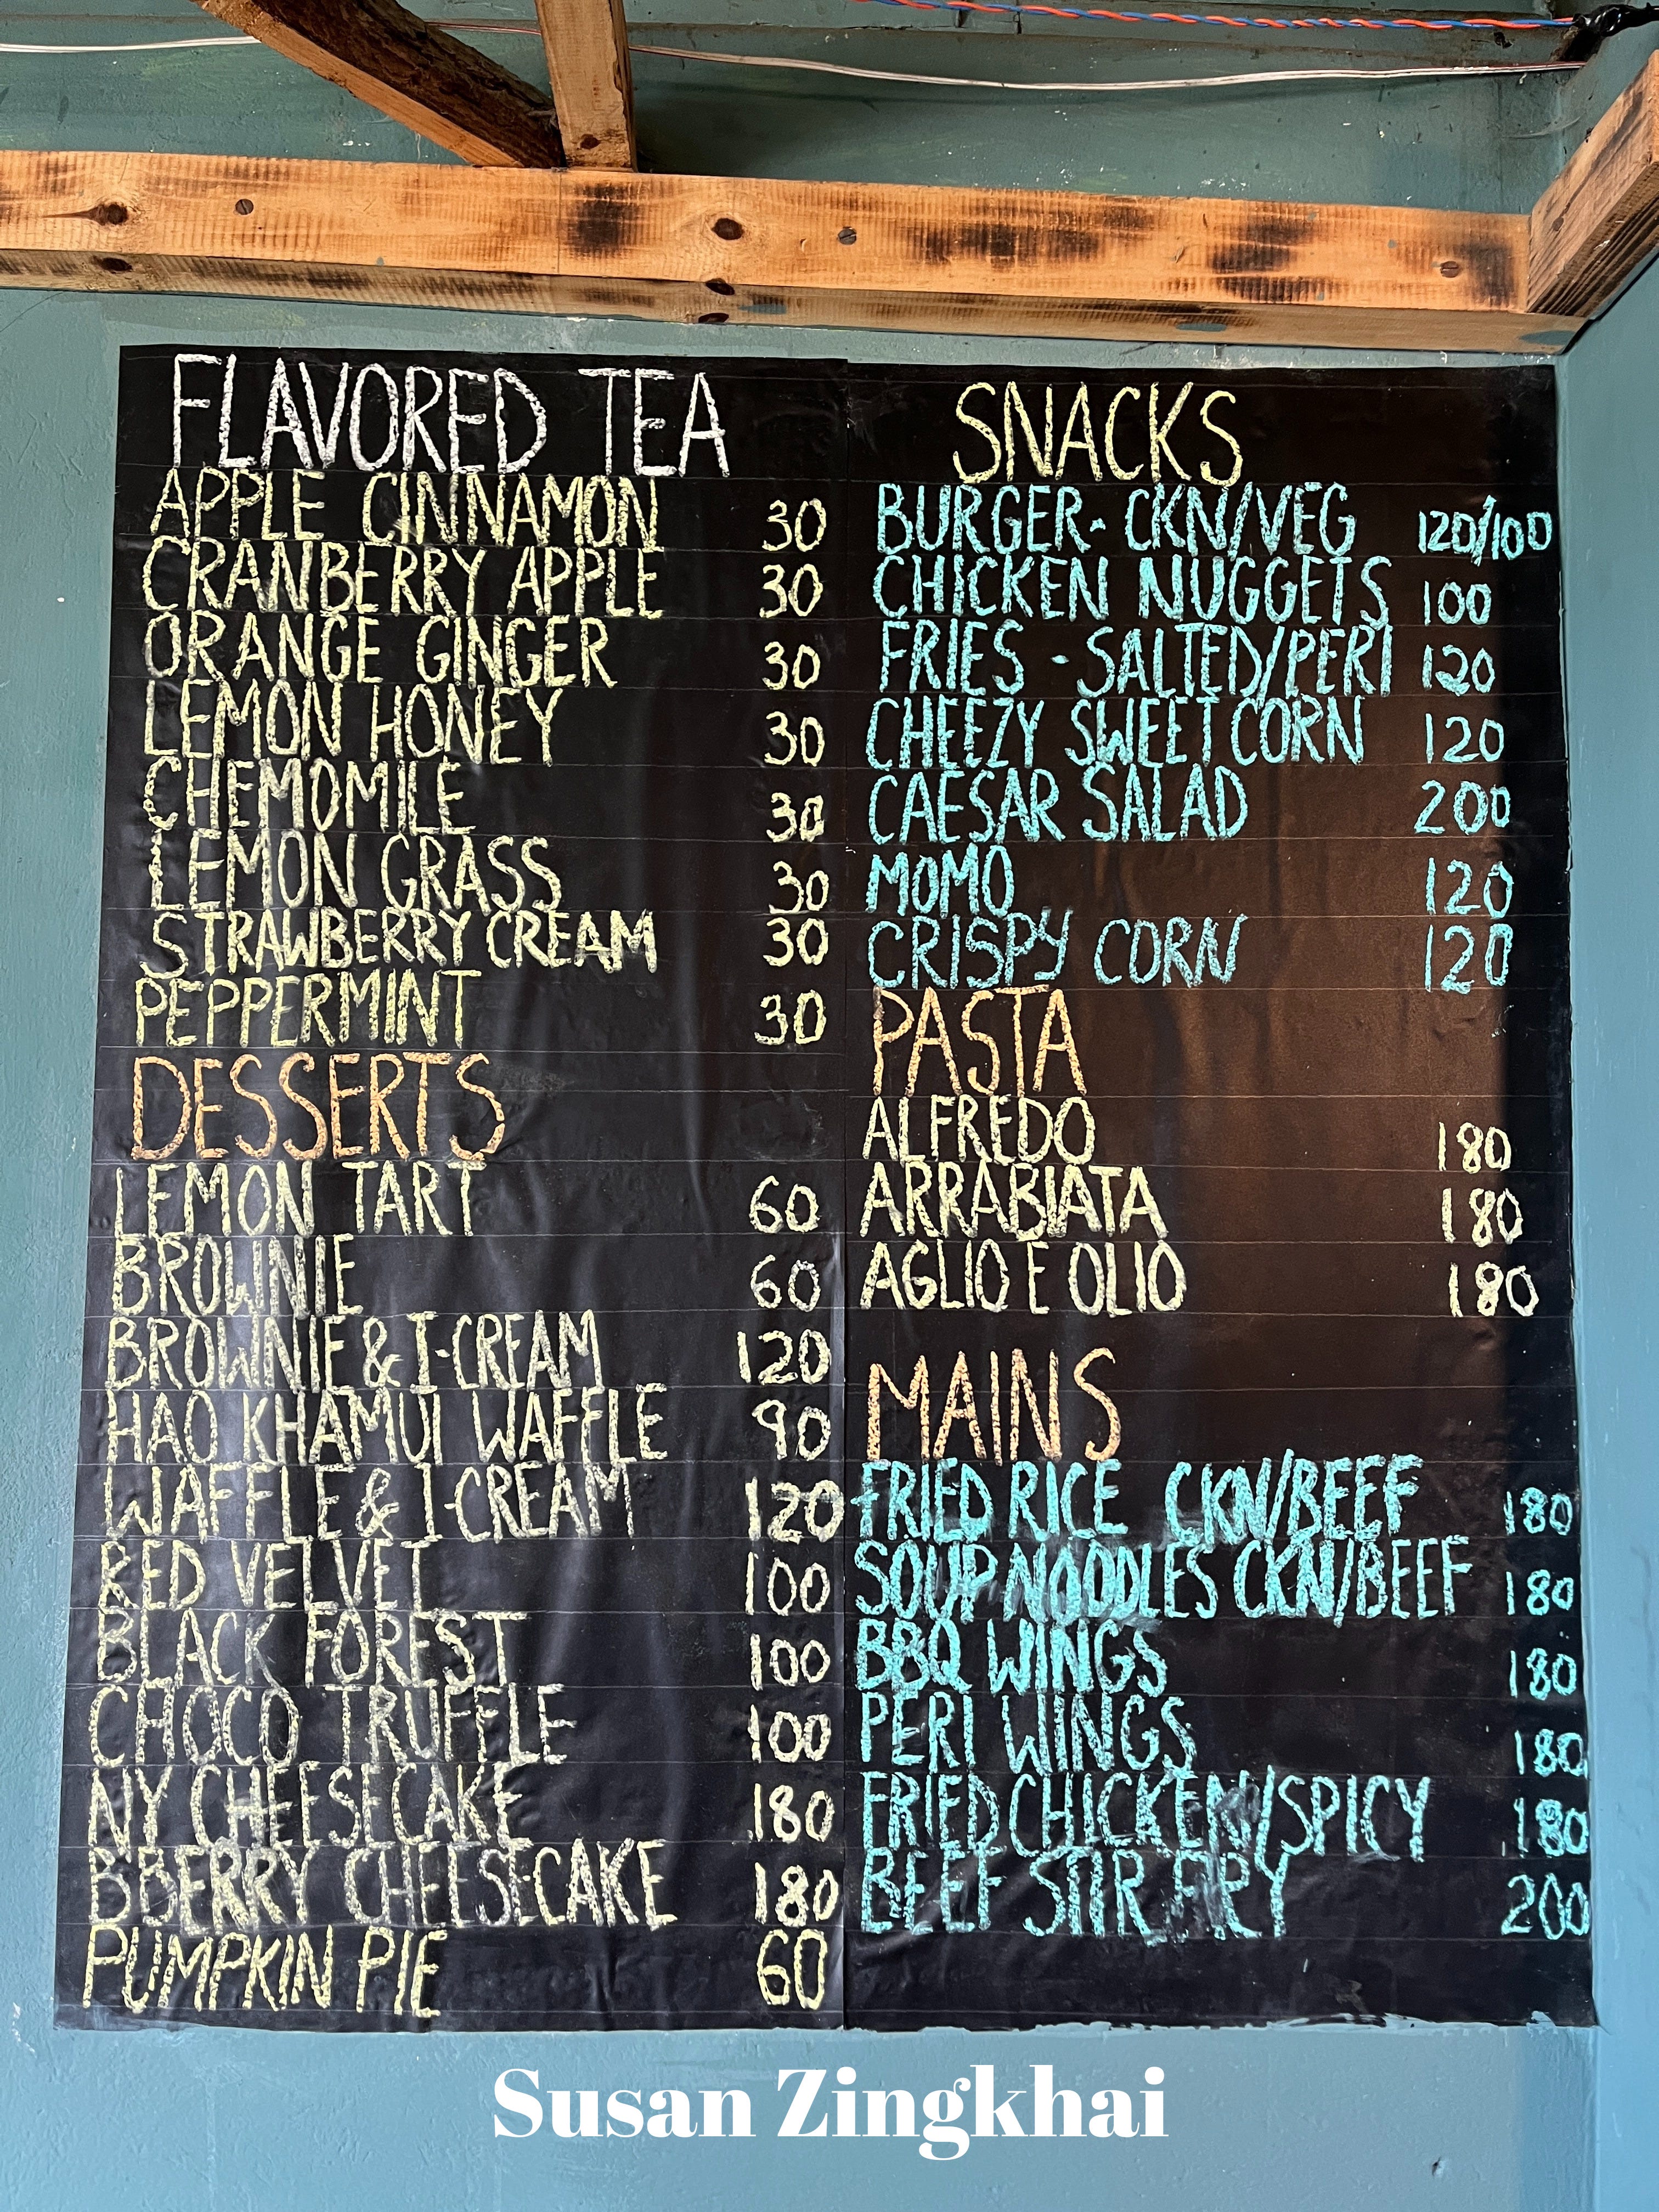 FLAVORED TEA
APPLE CINNAMON 30
CRANBERRY APPLE 30
ORANGE GINGER 30
LEMON HONEY 30
CHEMOMILE 30
LEMON GRASS 30
STRAWBERRY CREAM 30
PEPPERMINT 30
DESSERTS
LEMON TART 60
BROWNIE 60
BROWNIE & I-CREAM 120
HAO KHAMUI WAFFLE 90
WAFFLE & I-CREAM 120
RED VELVET 100
BLACK FOREST 100
CHOCO TRUFFLE 100
NY CHEESECAKE 180
BBERRY CHEESECAKE 180
PUMPKIN PIE 60
SNACKS
BURGER- CKN/VEG 120/100
CHICKEN NUGGETS 100
FRIES - SALTED/PERI 120
CHEEZY SWEET CORN 120
CAESAR SALAD 200
MOMO 120
CRISPY CORN 120
PASTA
ALFREDO 180
ARRABIATA 180
AGLIO E OLIO 180
MAINS
FRIED RICE CKN/BEEF 180
SOUP NOODLES CKN/BEEF 180
BBQ WINGS 180
PERI WINGS 180
FRIED CHICKEN/SPICY 180
BEEF STIR FRY 200
Susan Zingkhai